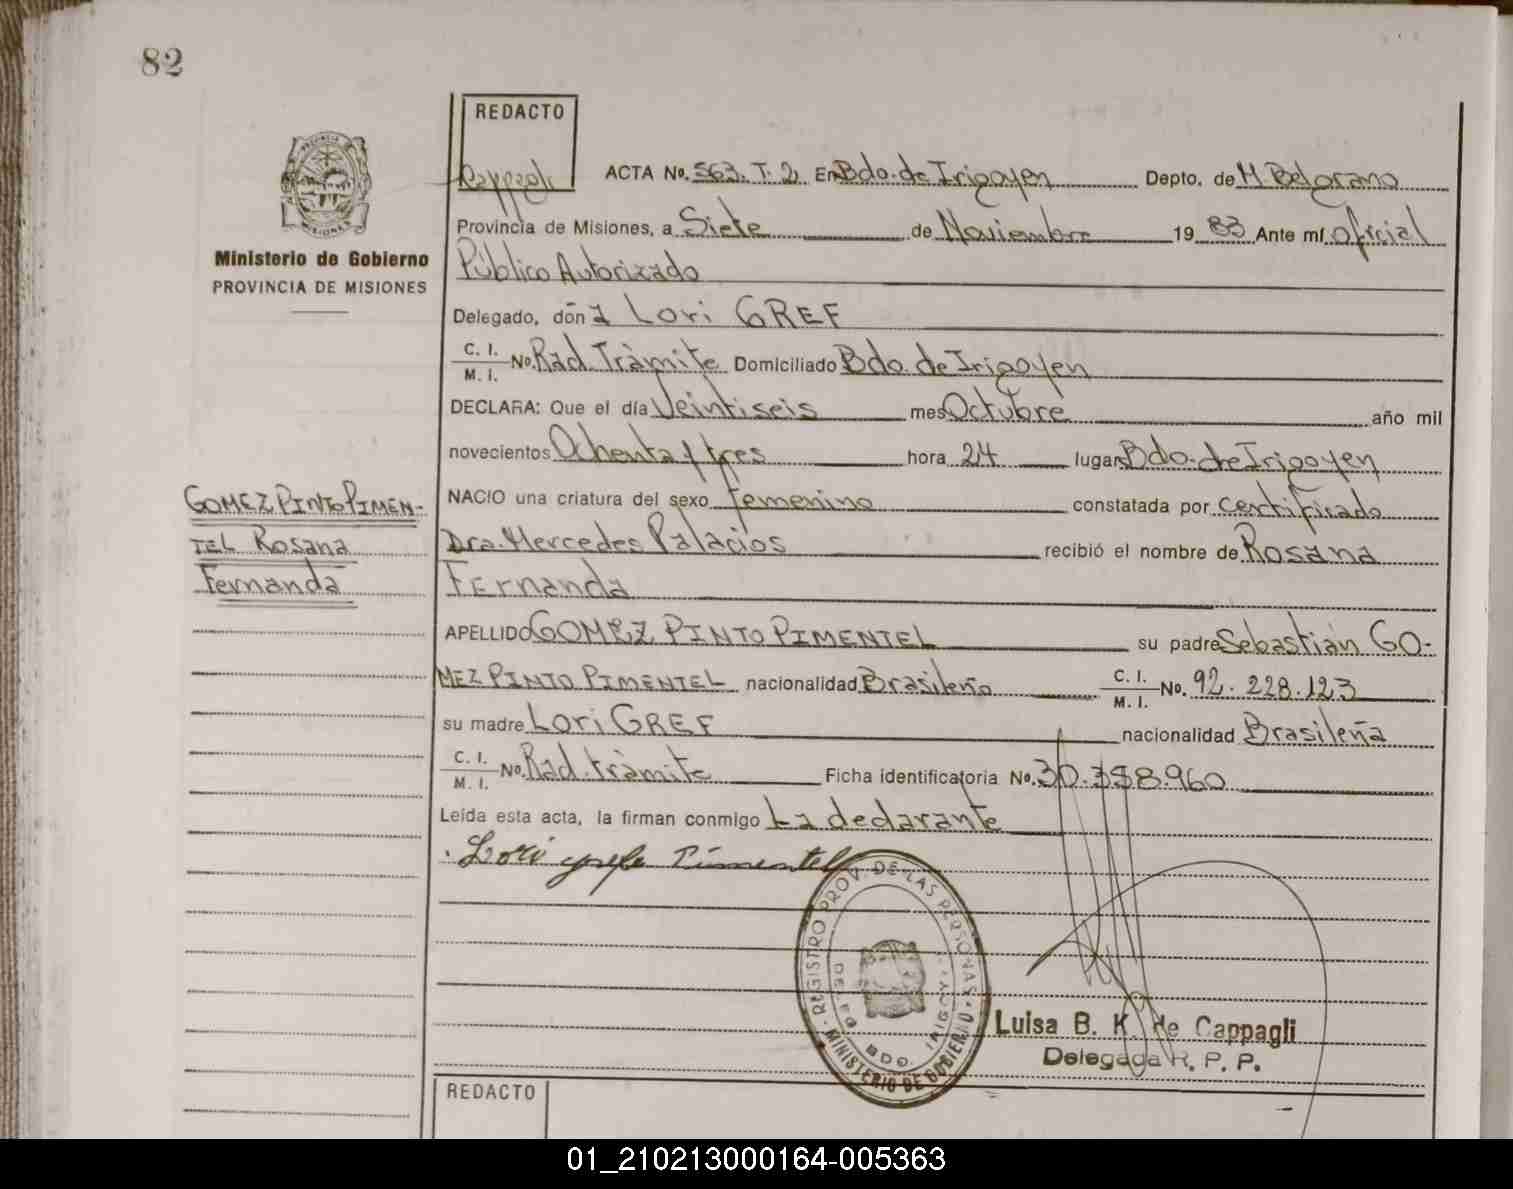 82
REDACTO
Cappagli
ACTA No. 563. T. 2 En Bdo. de Irigoyen Depto. de M. Belgrano
Provincia de Misiones, a Siete de Noviembre 19 83 Ante mí Oficial
Público Autorizado
Delegado, don a Lori GREF
C. I.
M. I.
No. Rad. Tràmite Domiciliado Bdo. de Irigoyen
DECLARA: Que el día Veintiseis mes Octubre año mil
novecientos Ochenta y tres hora 24 lugar Bdo. de Irigoyen
NACIO una criatura del sexo femenino constatada por certificado
Dra. Mercedes Palacios recibió el nombre de Rosana
Fernanda
APELLIDO GOMEZ PINTO PIMENTEL su padre Sebastian GO-
MEZ PINTO PIMENTEL nacionalidad Brasileño C. I.
M. I. No. 92. 228. 123
su madre Lori GREF nacionalidad Brasileña
C. I.
M. I.
No. Rad. tràmite Ficha identificatoria No. 30.358.960
Leída esta acta, la firman conmigo La declarante
Lori grefe Pimentel
PROVINCIA
MISIONES
Ministerio de Gobierno
PROVINCIA DE MISIONES
GOMEZ PINTO PIMEN-
TEL Rosana
Fernanda
REGISTRO PROV. DE LAS PERSONAS
MINISTERIO DE GOBIERNO
DELEG. BDO. IRIGOYEN
Luisa B. K. de Cappagli
Delegada R. P. P.
REDACTO
01_210213000164-005363